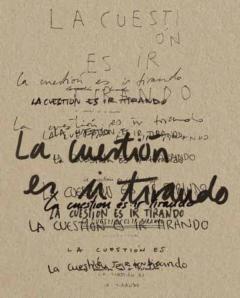 LA CUESTI
ÓN
ES IR
la cuestión es ir tirando
TIRANDO
LA CUESTION ES IR TIRANDO
La cuestión es ir tirando
LA CUESTION ES IR TIRANDO
La cuestión
es ir tirando
la cuestión es ir tirando
LA CUESTIÓN ES IR TIRANDO
LA CUESTION ES IR TIRANDO
LA CUESTION ES
La cuestión es ir tirando
LA CUESTION ES
IR TIRANDO